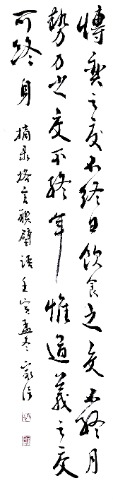 博弈之交不終日飲食之交不終月
勢力之交不終年惟道義之交
可終身
摘录格言联璧語壬寅孟冬